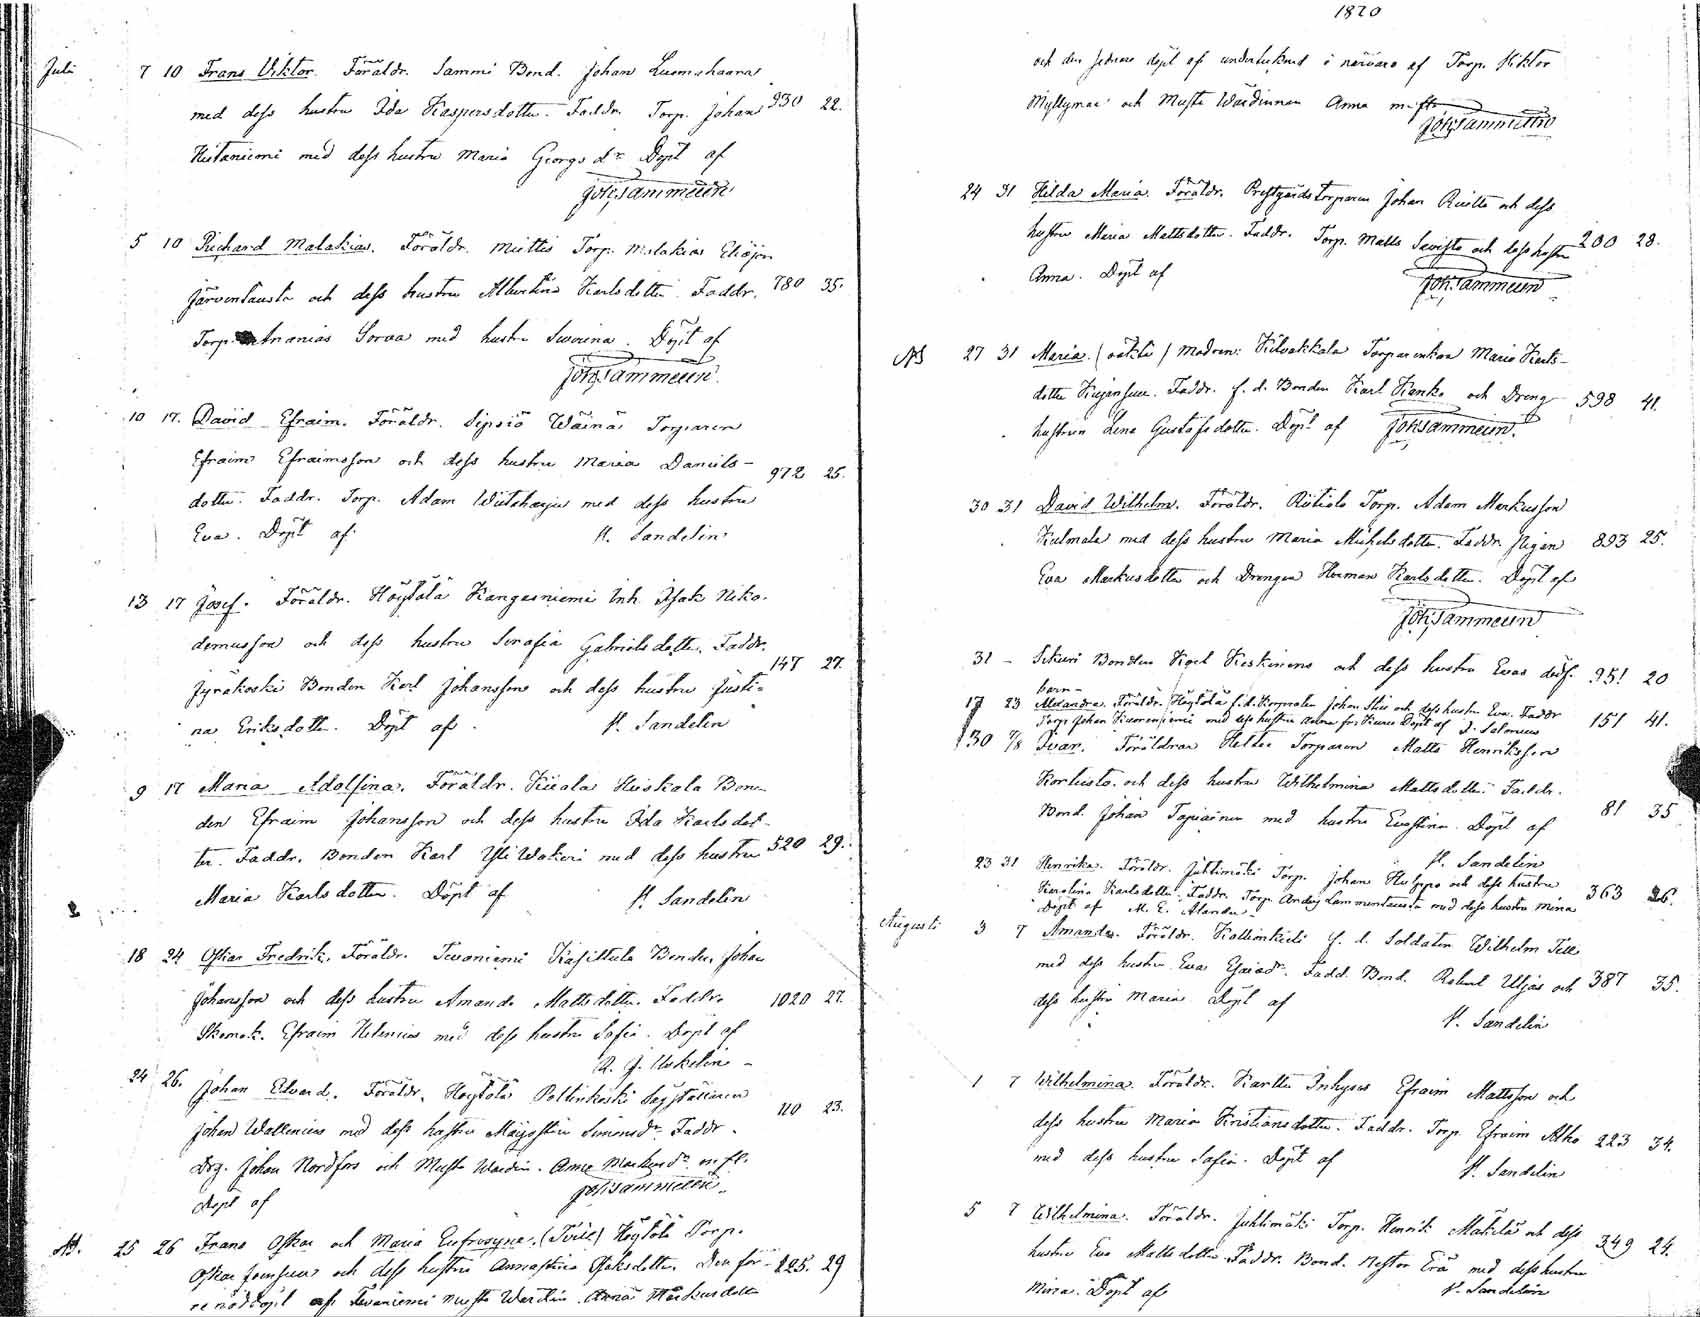 Juli 7 10 Frans Viktor. Föräldr. Sammi Bond. Johan Luomahaara
med dess hustru Ida Kaspersdotter. Faddr. Torp. Johan 930 22.
Hietaniemi med dess hustru Maria Georgs dr. Döpt af
Joh. Sammeun
5 10 Richard Malakias. Föräldr. Miettis Torp. Malakias Eliæson
Järventausta och dess hustru Albertina Karlsdotter. Faddr. 780 35.
Torp. Ananias Sorva med hustru Severina. Döpt af
Joh. Sammeun
10 17. David Efraim. Föräldr. Sipsiö Wäinäs Torparen
Efraim Efraimsson och dess hustru Maria Daniels-
dotter. Faddr. Torp. Adam Wiitaharju med dess hustru 972 25.
Eva. Döpt af K. Sandelin
13 17 Josef. Föräldr. Höytölä Kangasniemi Inh. Isak Niko-
demusson och dess hustru Serafia Gabrielsdotter. Faddr.
Jyräkoski Bonden Karl Johansson och dess hustru Justi- 147 27.
na Eriksdotter. Döpt af K. Sandelin
9 17 Maria Adolfina. Föräldr. Kiiala Heiskala Bon-
den Efraim Johansson och dess hustru Ida Karlsdot-
ter. Faddr. Bonden Karl Yli Wakeri med dess hustru 520 29.
Maria Karlsdotter. Döpt af K. Sandelin
18 24 Oskar Fredrik. Föräldr. Tevaniemi Kasittula Bonden Johan
Johansson och dess hustru Amanda Mattsdotter. Faddr. 1020 27.
Skomak. Efraim Helenius med dess hustru Sofia. Döpt af
A. J. Uskelin
24 26. Johan Edvard. Föräldr. Höytölä Poltinkoski
Johan Wallenius med dess hustru Simonsdr. Faddr. 110 23.
Drg. Johan Nordfors och Muste Wärdin. Anna Markusdr. m. fl.
Döpt af Joh. Sammeun
NB. 25 26 Frans Oskar och Maria Eufrosyne. Höytölä Torp.
Oskar och dess hustru Isaksdotter. Den för- 225. 29
re nöddöpt af Tevaniemi Muste Wärdin. Anna Markusdotter
1820
och den sednare döpt af undertecknad i närvaro af Torp. Viktor
Myllymaa och Muste Wärdinnan Anna m. fl.
Joh. Sammeun
24 31 Hilda Maria. Föräldr. Prestgårdstorparen Johan och dess
hustru Maria Mattsdotter. Faddr. Torp. Matts Savisto och dess hustru 200 28.
Anna. Döpt af Joh. Sammeun
NB 27 31 Maria. (oäkta) Modren: Kilvakkala Torparenkan Maria Karls-
dotter. Faddr. f. d. Bonden Karl Hanko och Dreng- 598 41.
hustrun Lena Gustafsdotter. Döpt af Joh. Sammeun.
30 31 David Wilhelm. Föräldr. Riitiala Torp. Adam Markusson
Kulmala med dess hustru Maria Mickelsdotter. Faddr. Pigan 893 25.
Eva Markusdotter och Drengen Herman Karlsdotter. Döpt af
Joh. Sammeun
31 – Sikuri Bonden Keskinens och dess hustru Evas dödf. 951 20
barn –
17 23 Alexandra. Föräldr. Höytölä f. d. Korpralen Johan och dess hustru Eva. Faddr
Torp. Johan med dess hustru Döpt af J. Salonius 151 41.
30 7/8 Ivar. Föräldrar Heltti Torparen Matts Henriksson
Kortisto och dess hustru Wilhelmina Mattsdotter. Faddr.
Bond. Johan Tapiainen med hustru Evastina. Döpt af 81 35
K. Sandelin
23 31 Henrika. Föräldr. Juhtimäki Torp. Johan Huhpo och dess hustru
Karolina Karlsdotter. Faddr. Torp. Anders Lammentausta med dess hustru Mina 363 26.
Döpt af M. E. Alander
Augusti 3 7 Amanda. Föräldr. Kallionkieli f. d. Soldaten Wilhelm
med dess hustru Eva Esaiædr. Fadd. Bond. Robert Uljas och 387 35.
dess hustru Maria. Döpt af
K. Sandelin
1 7 Wilhelmina. Föräldr. Kartti Inhyses Efraim Mattsson och
dess hustru Maria Kristiansdotter. Faddr. Torp. Efraim Alho 223 34.
med dess hustru Sofia. Döpt af K. Sandelin
5 7 Wilhelmina. Föräldr. Juhtimäki Torp. Henrik Mäkelä och dess
hustru Eva Mattsdotter. Faddr. Bond. Nestor Erä med dess hustru 349 24.
Mina. Döpt af K. Sandelin